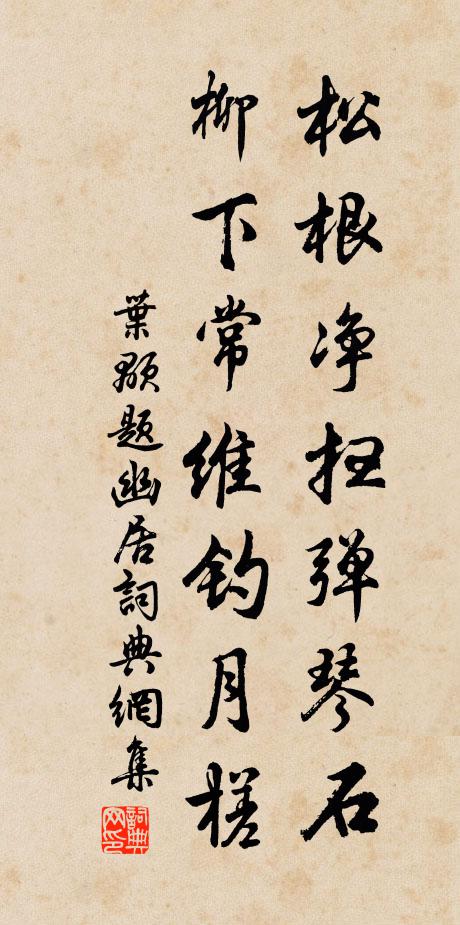 松根净扫弹琴石
柳下常维钓月槎
葉颙題幽居詞典網集
詞典网印